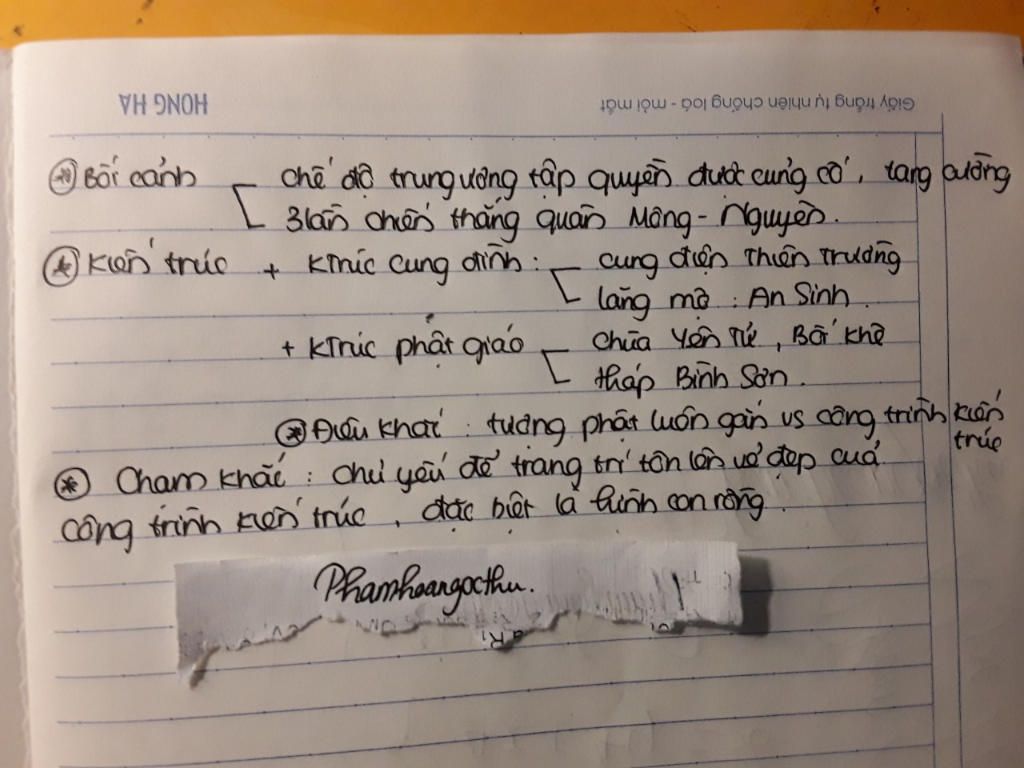 HONG HA
Giấy trắng tự nhiên chống loá - mỏi mắt
Bối cảnh chế độ trung ương tập quyền được củng cố, tăng cường
3 lần chiến thắng quân Mông - Nguyên.
Kiến trúc + Ktrúc cung đình: cung điện Thiên Trường
lăng mộ: An Sinh.
+ Ktrúc phật giáo chùa Yên Tử, Bối Khê
tháp Bình Sơn.
* Điêu khắc: tượng phật luôn gắn vs công trình kiến
trúc
* Chạm khắc: chủ yếu để trang trí tôn lên vẻ đẹp của
công trình kiến trúc, đặc biệt là hình con rồng.
Phamhoangocthu.